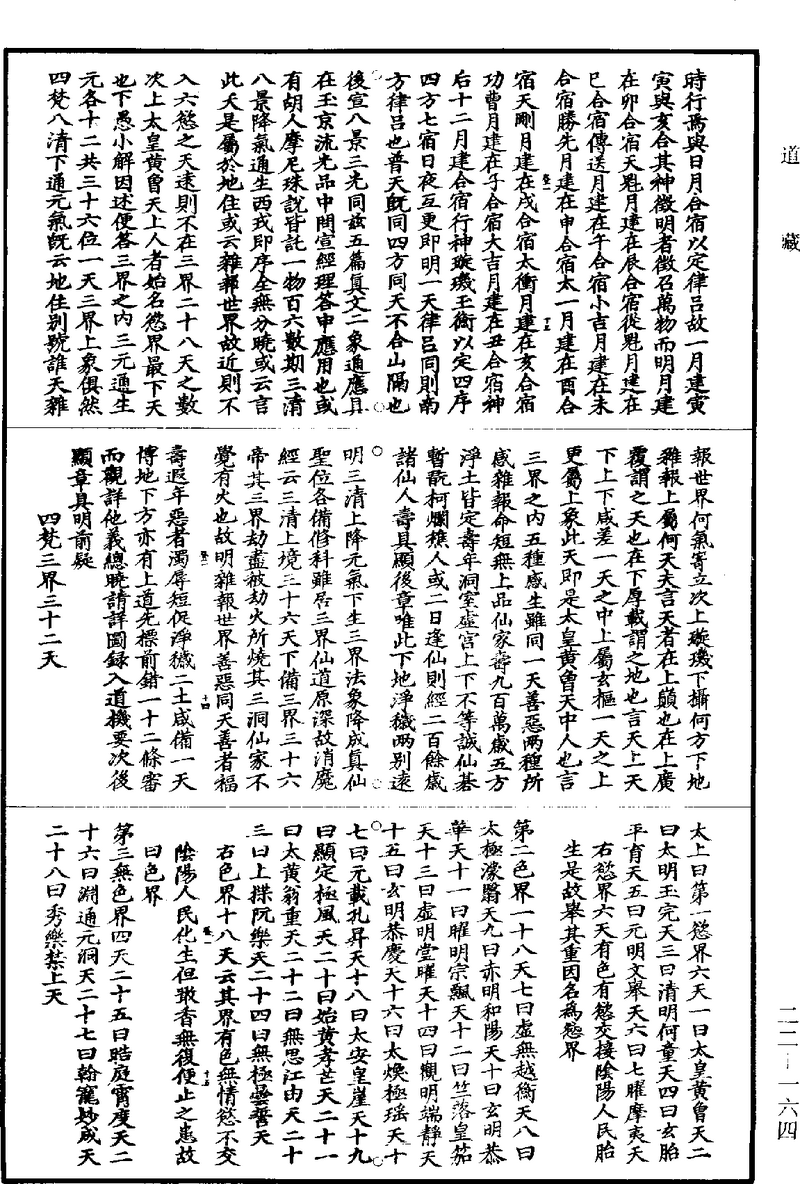 道藏
二二—一六四
時行焉與日月合宿以定律呂故一月建寅
寅與亥合其神徵明者徵召萬物而明月建
在卯合宿天魁月建在辰合宿從魁月建在
巳合宿傳送月建在午合宿小吉月建在未
合宿勝先月建在申合宿太一月建在酉合
宿天剛月建在戌合宿太衝月建在亥合宿
功曹月建在子合宿大吉月建在丑合宿神
后十二月建合宿行神璇璣玉衡以定四序
四方七宿日夜互更即明一天律呂同則南
方律呂也普天既同四方同天不合山隔也
後宣八景三光同茲五篇真文二象通應具
在玉京流光品中問宣經理答申應用也或
有胡人摩尼珠說皆託一物百六數期三清
八景降氣通生西戎即序全無分曉或云言
此天是屬於地住或云雜報世界故近則不
入六慾之天遠則不在三界二十八天之數
次上太皇黃曾天上人者始名慾界最下天
也下愚小解因述便答三界之內三元通生
元各十二共三十六位一天三界上象俱然
四梵八清下通元氣既云地住別號誰天雜
報世界何氣寄立次上璇璣下攝何方下地
雜報上屬何天夫言天者在上顛也在上廣
覆謂之天也在下厚載謂之地也言天上天
下上下咸差一天之中上屬玄樞一天之上
更屬上象此天即是太皇黃曾天中人也言
三界之內五種感生雖同一天善惡兩種所
感雜報命短無上品仙家壽九百萬歲五方
淨土皆定壽年洞室虛宮上下不等誠仙棊
暫翫柯爛樵人或二日逢仙則經二百餘歲
諸仙人壽具顯後章唯此下地淨穢兩別遠
明三清上降元氣下生三界法象降成真仙
聖位各備修科雖居三界仙道原深故消魔
經云三清上境三十六天下備三界三十六
帝其三界劫盡被劫火所燒其三洞仙家不
覺有火也故明雜報世界善惡同天善者福
壽遐年惡者濁辱短促淨穢二土咸備一天
博地下方亦有上道先標前錯一十二條審
而觀詳他義總曉請詳圖錄入道機要次後
顯章具明前疑
四梵三界三十二天
太上曰第一慾界六天一曰太皇黃曾天二
曰太明玉完天三曰清明何童天四曰玄胎
平育天五曰元明文舉天六曰七曜摩夷天
右慾界六天有色有慾交接陰陽人民胎
生是故舉其重因名為慾界
第二色界一十八天七曰虛無越衡天八曰
太極濛翳天九曰赤明和陽天十曰玄明恭
華天十一曰曜明宗飄天十二曰竺落皇笳
天十三曰虛明堂曜天十四曰觀明端靜天
十五曰玄明恭慶天十六曰太煥極瑤天十
七曰元載孔昇天十八曰太安皇崖天十九
曰顯定極風天二十曰始黃孝芒天二十一
曰太黃翁重天二十二曰無思江由天二十
三曰上揲阮樂天二十四曰無極曇誓天
右色界十八天云其界有色無情慾不交
陰陽人民化生但散香無復便止之患故
曰色界
第三無色界四天二十五曰皓庭霄度天二
十六曰淵通元洞天二十七曰翰寵妙成天
二十八曰秀樂禁上天